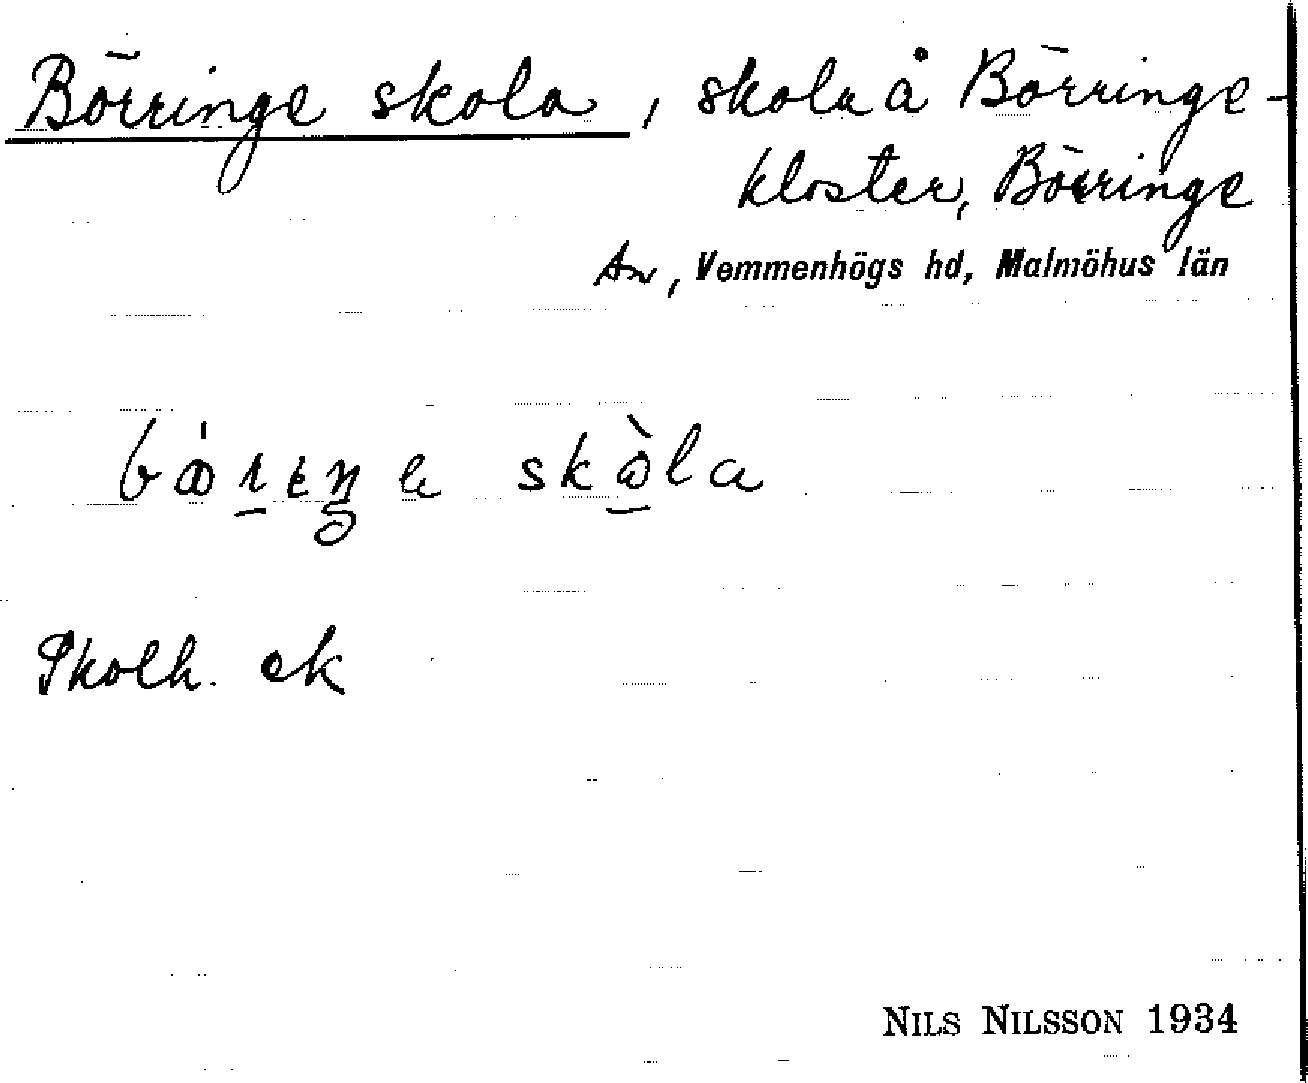 Börringe skola, skola å Börringe-
kloster, Börringe
sn, Vemmenhögs hd, Malmöhus län
skòla
Skolh. ek
NILS NILSSON 1934